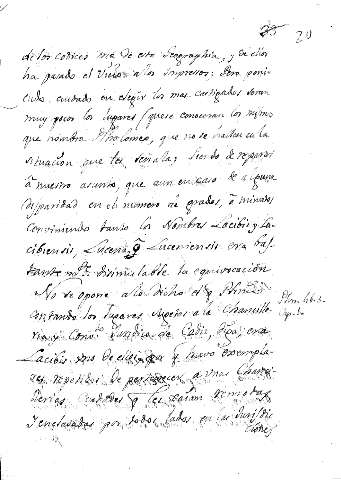 29
de los codices mss de esta Geographia, y de ellos
ha pasado el vicio a los impresos: Pero poni
endo cuidado en elegir los mas castigados seran
muy pocos los lugares (que se conoceran los mismos
que nombra Ptholomeo, que no se hallen en la
situacion que les señala; siendo de reparar
a nuestro asunto, que aun en caso de alguna
disparidad en el numero de grados, o minutos
conviniendo tanto los Nombres Lacibis y La
cibiensis, Lucena, q Luceniensis era bas
tante disimulable la equivocacion
No se opone a lo dicho el q Plinio
contando los lugares sujetos a la Chancille
ria y Conv. Juridica de Cadiz,
Lacibis uno de ellos
repetidos de pertenecer a unas Chanci
llerias Ciudades q les caian remotas
y enclavadas por todos lados en las Jurisdic
ciones
Plin. lib. 3.
cap. 1.